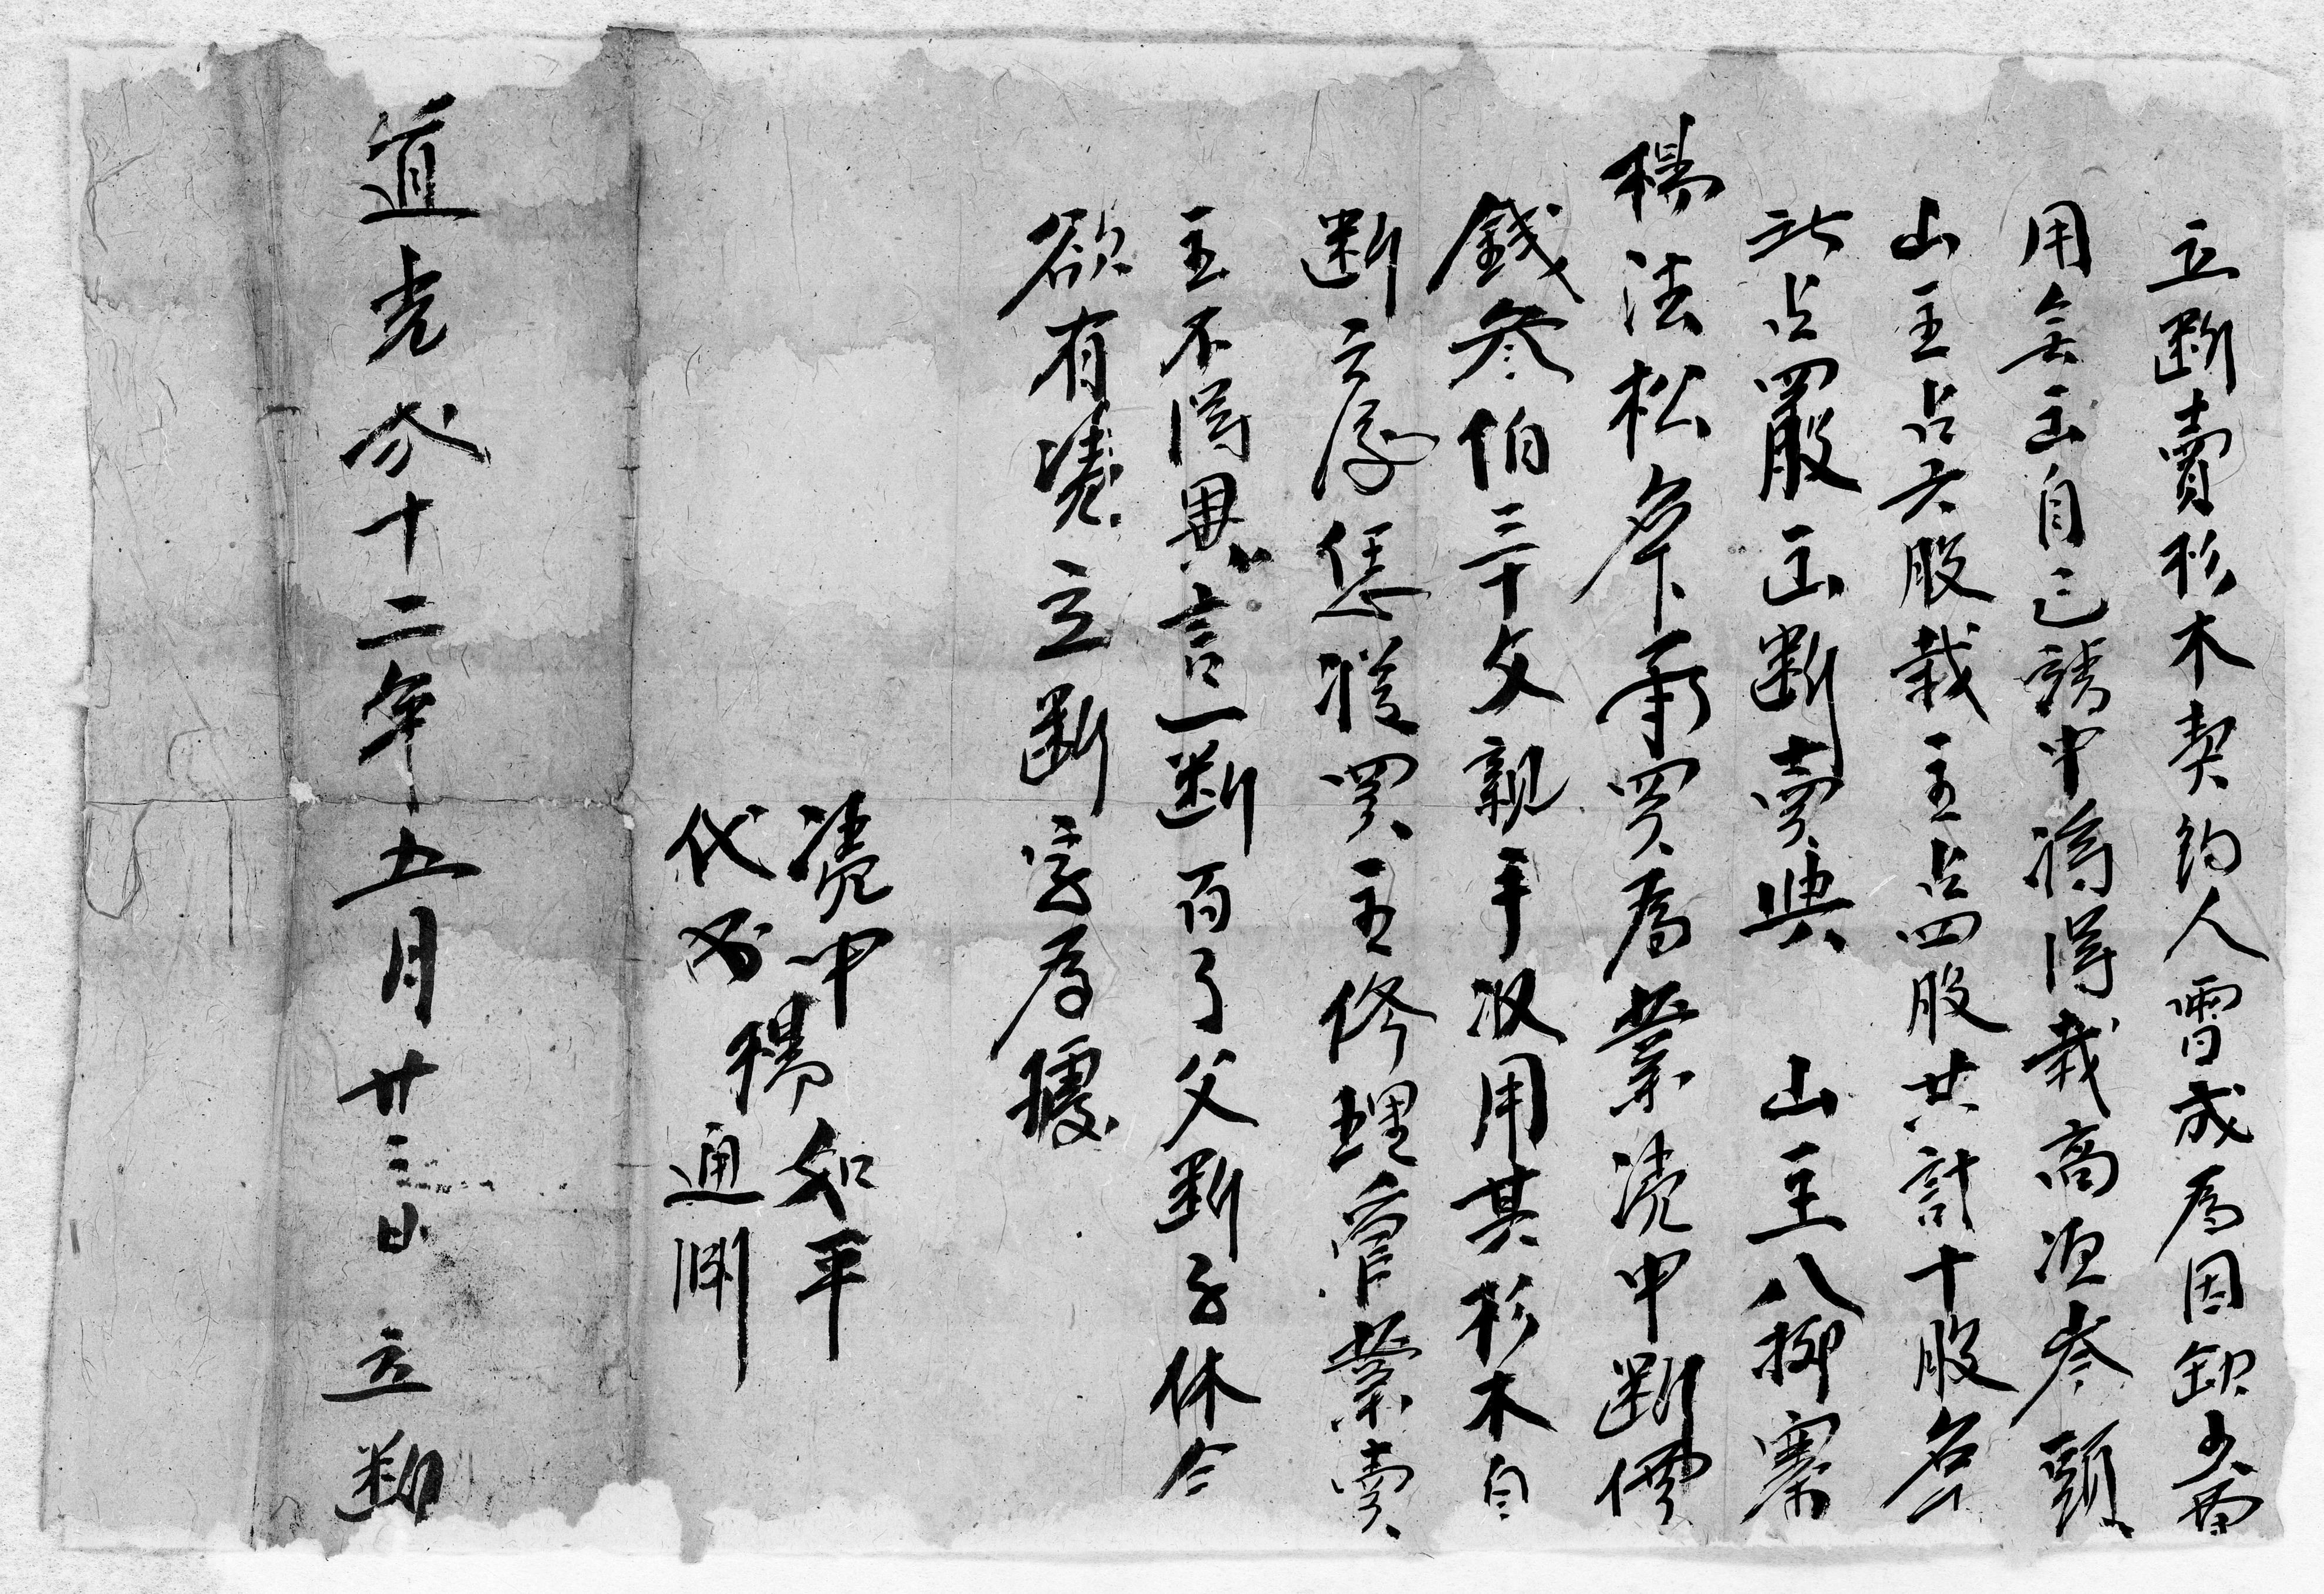 立断賣杉木契約人曹成為因缺少費
用無出自己請中將得栽高洭叁頭
山主占六股栽主占四股共計十股名
此占四股出断賣與 山主八柳寨
楊法松名下承買為業凴中断價
錢叁伯三十文親手収用其杉木自
断之后恁從買主修理管業賣
主不得異言一断百了父断子休今
欲有凴立断字為據
凴中楊如平
代筆楊通開
道光弐十二年五月廿三日 立断